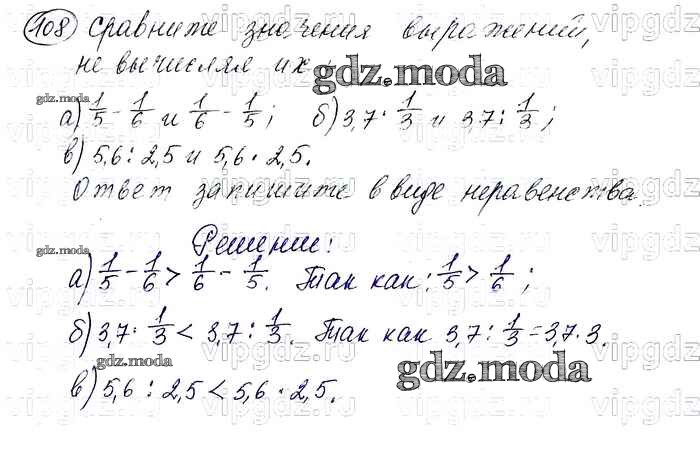 108 Сравните значения выражений,
не вычисляя их:
а) 1/5 - 1/6 и 1/6 - 1/5; б) 3,7 · 1/3 и 3,7 : 1/3;
в) 5,6 : 2,5 и 5,6 · 2,5.
Ответ запишите в виде неравенства.
Решение:
а) 1/5 - 1/6 > 1/6 - 1/5. Так как: 1/5 > 1/6;
б) 3,7 · 1/3 < 3,7 : 1/3. Так как 3,7 : 1/3 = 3,7 · 3.
в) 5,6 : 2,5 < 5,6 · 2,5.
gdz.moda
gdz.moda
gdz.moda
gdz.moda
gdz.moda
vipgdz.ru